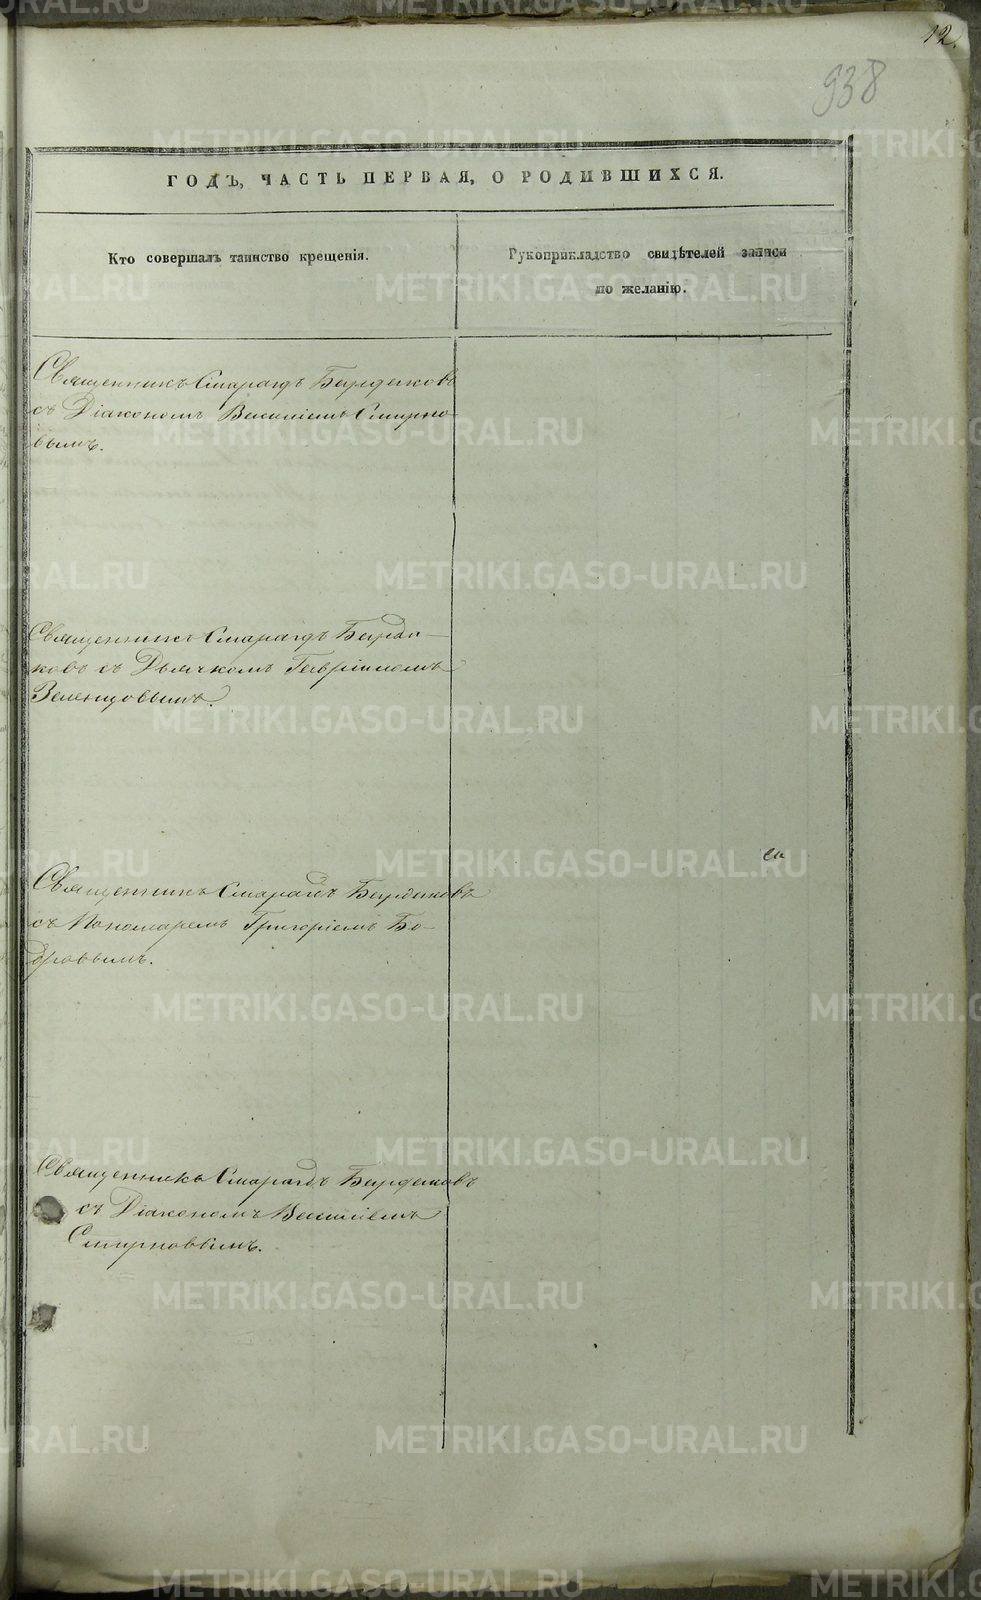 12.
938
ГОДЪ, ЧАСТЬ ПЕРВАЯ, О РОДИВШИХСЯ.
Кто совершалъ таинство крещенія.
Рукоприкладство свидѣтелей записи
по желанію.
Священникъ Смарагдъ Бирюковъ
съ Діакономъ Василіемъ Смирно-
вымъ.
Священникъ Смарагдъ
ковъ съ Дьячкомъ Гавріиломъ
Зеленцовымъ.
Священникъ Смарагдъ
съ Пономаремъ Григоріемъ Бо-
дровымъ.
Священникъ Смарагдъ
съ Діакономъ Василіемъ
Смирновымъ.
METRIKI.GASO-URAL.RU